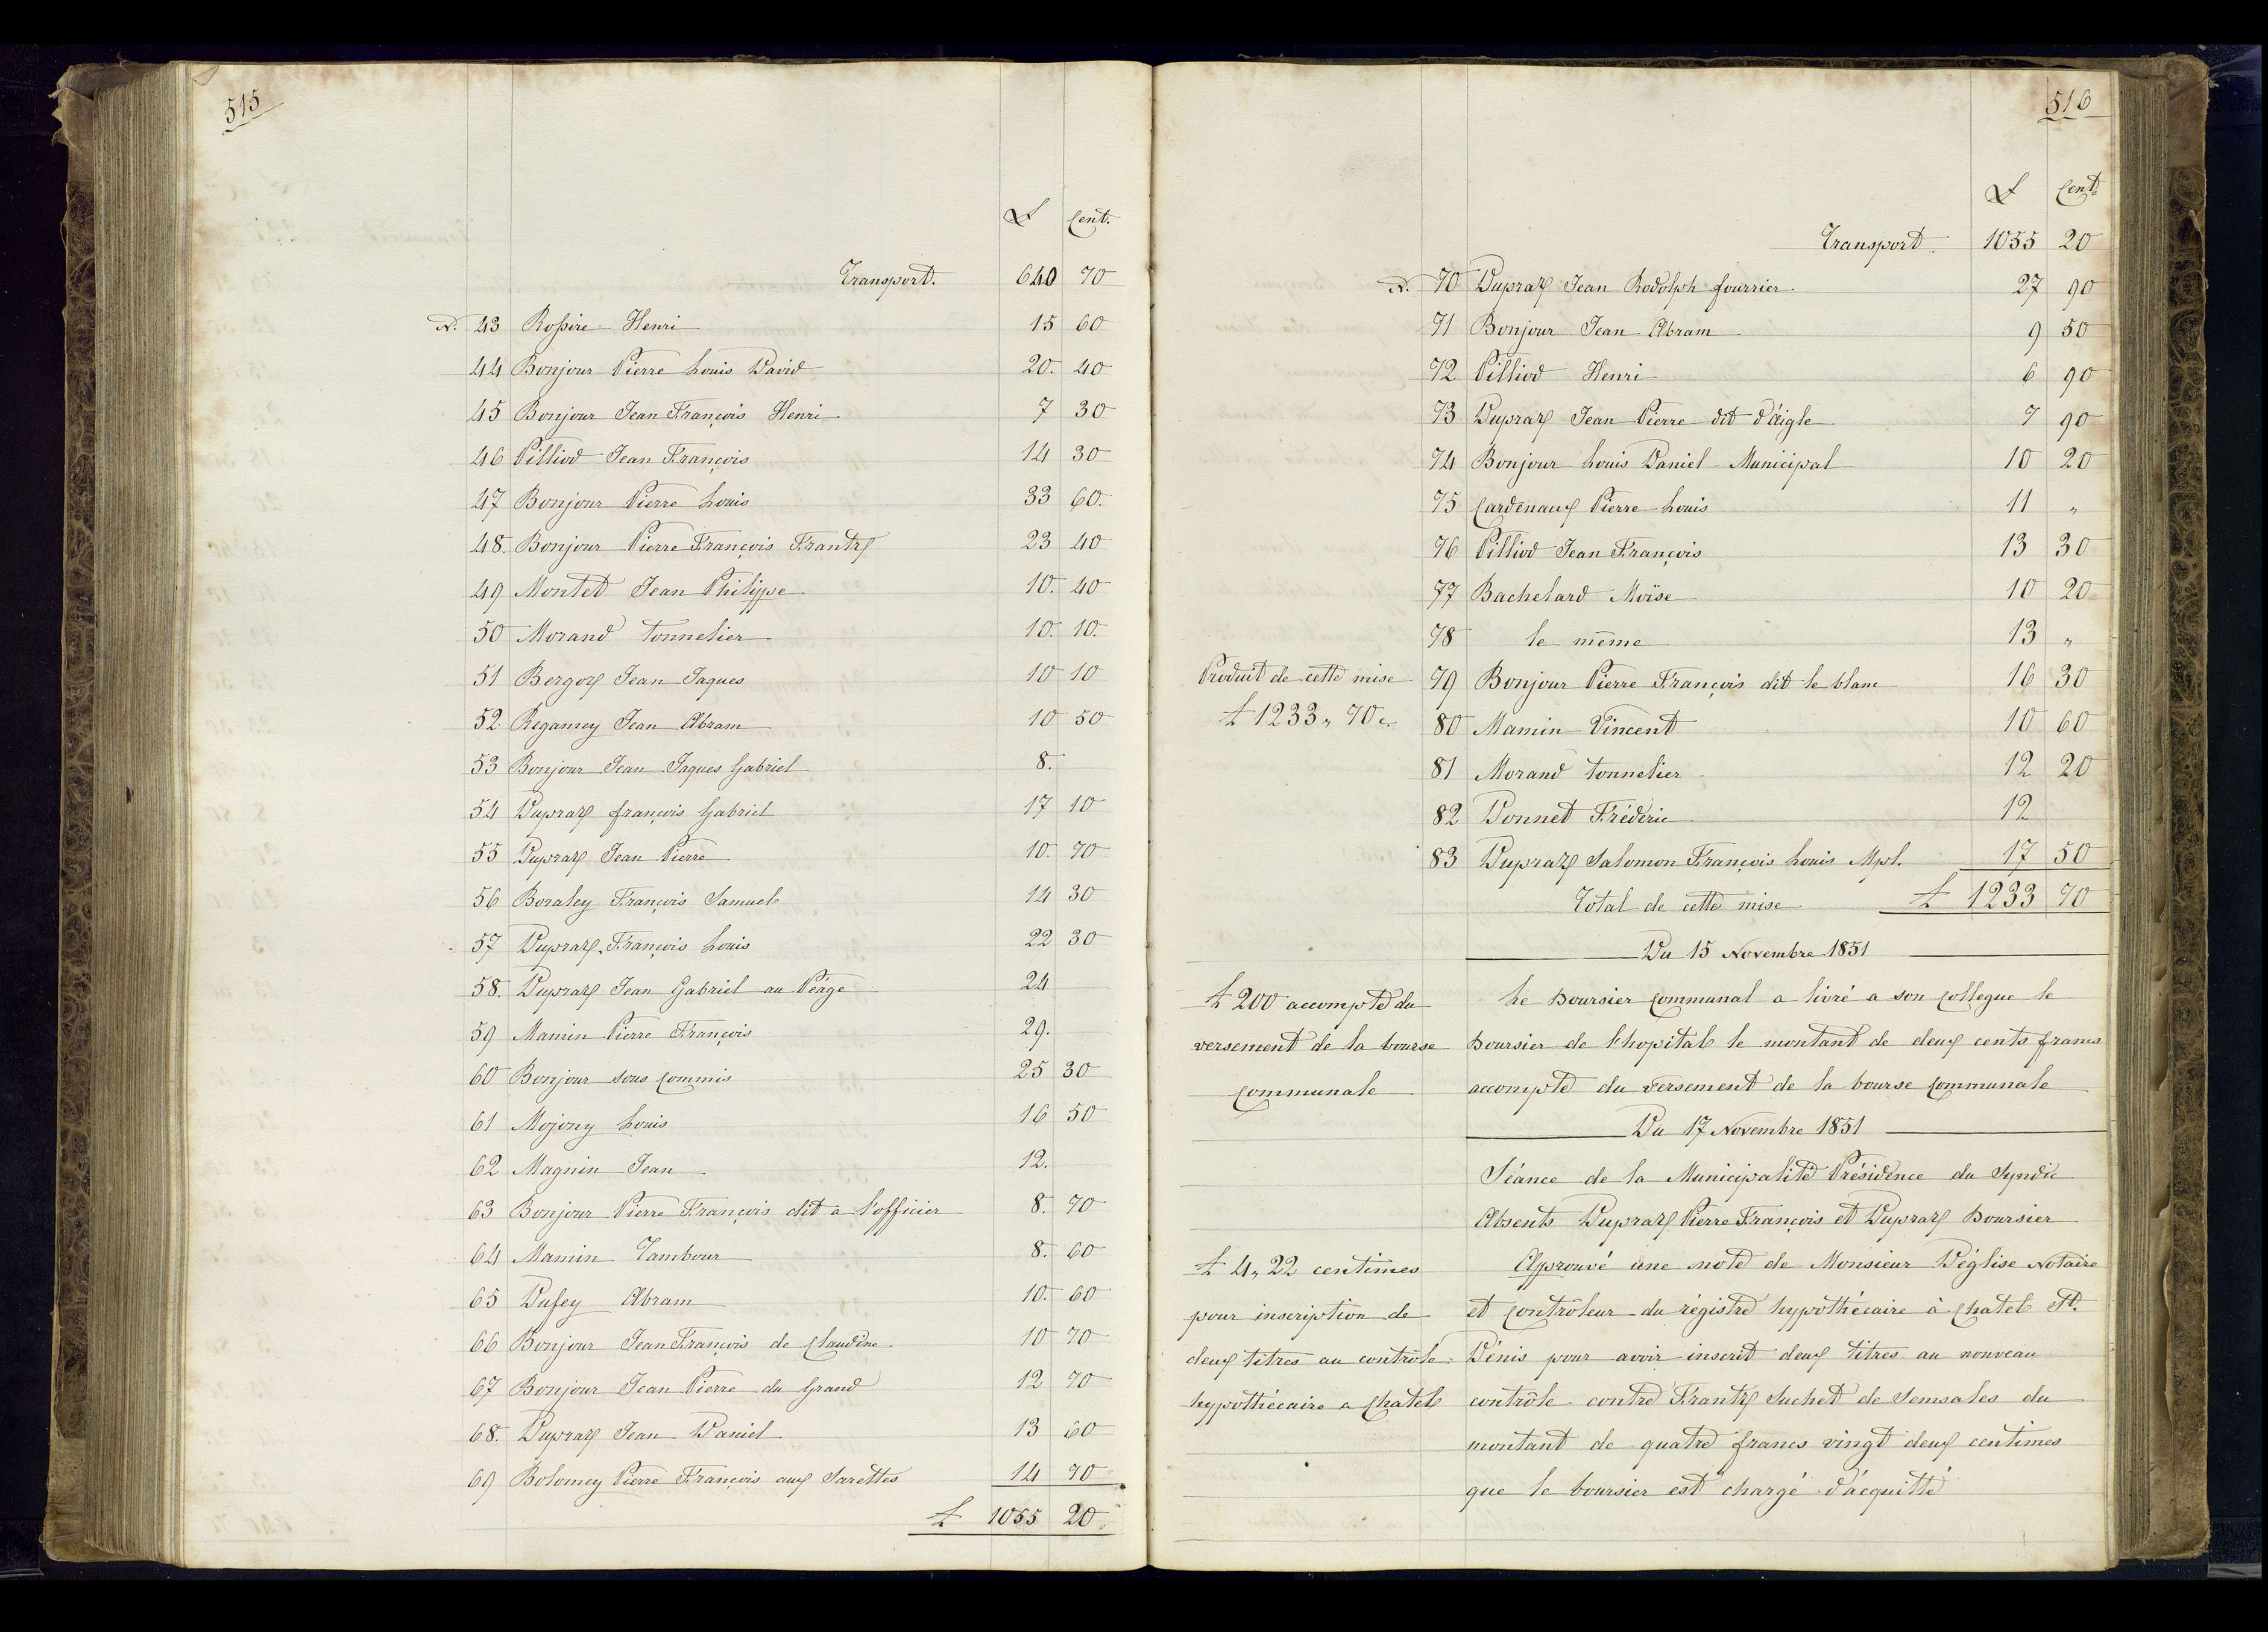 515
£ Cent.
Transport. 640 70
N. 43 Rossire Henri 15 60
44 Bonjour Pierre Louis David 20. 40
45 Bonjour Jean François Henri 7 30
46 Pilliod Jean François 14 30
47 Bonjour Pierre Louis 33 60.
48. Bonjour Pierre François Frantz 23 40
49 Montet Jean Philippe 10. 40
50 Morand tonnelier 10. 10.
51 Bergoz Jean Jaques 10 10
52. Regamey Jean Abram 10 50
53 Bonjour Jean Jaques Gabriel 8.
54 Dupraz françois Gabriel 17 10
55 Dupraz Jean Pierre 10. 70
56 Boraley François Samuel 14 30
57 Dupraz François Louis 22 30
58. Dupraz Jean Gabriel au Péage 24
59 Mamin Pierre François 29.
60 Bonjour sous commis 25 30
61 Mojony Louis 16 50
62 Magnin Jean 12.
63 Bonjour Pierre François dit à l'officier 8. 70
64 Mamin Tambour 8. 60
65 Dufey Abram 10. 60
66 Bonjour Jean François de Claudine 10 70
67 Bonjour Jean Pierre du Grand 12 70
68. Dupraz Jean Daniel 13 60
69 Bolomey Pierre François aux Sarettes 14 70
£ 1055 20.
516
£ Cent.
Transport 1055 20
N. 70 Dupraz Jean Rodolph fourrier 27 90
71 Bonjour Jean Abram 9 50
72 Pilliod Henri 6 90
73 Dupraz Jean Pierre dit d'aigle 7 90
74 Bonjour Louis Daniel Municipal 10 20
75 Cardenaux Pierre Louis 11 "
76 Pilliod Jean François 13 30
77 Bachelard Moïse 10 20
78 le même 13 "
Produit de cette mise 79 Bonjour Pierre François dit le blanc 16 30
£ 1233 " 70 c. 80 Mamin Vincent 10 60
81 Morand tonnelier 12 20
82 Donnet Fréderic 12
83 Dupraz Salomon François Louis Mpl. 17 50
Total de cette mise £ 1233 70
Du 15 Novembre 1851
£ 200 accompte du Le Boursier communal a livré a son collegue le
versement de la bourse Boursier de l'hopital le montant de deux cents francs
communale accompte du versement de la bourse communale
Du 17 Novembre 1851
Séance de la Municipalité Présidence du Syndic
Absents Dupraz Pierre François et Dupraz Boursier
£ 4 " 22 centimes Approuvé une note de Monsieur Déglise Notaire
pour inscription de et contrôleur du régistre hypothécaire à Chatel St.
deux titres au contrôle Dénis pour avoir inscrit deux titres au nouveau
hypothécaire a Chatel contrôle contre Frantz Suchet de Semsales du
montant de quatre francs vingt deux centimes
que le boursier est chargé d'acquitté